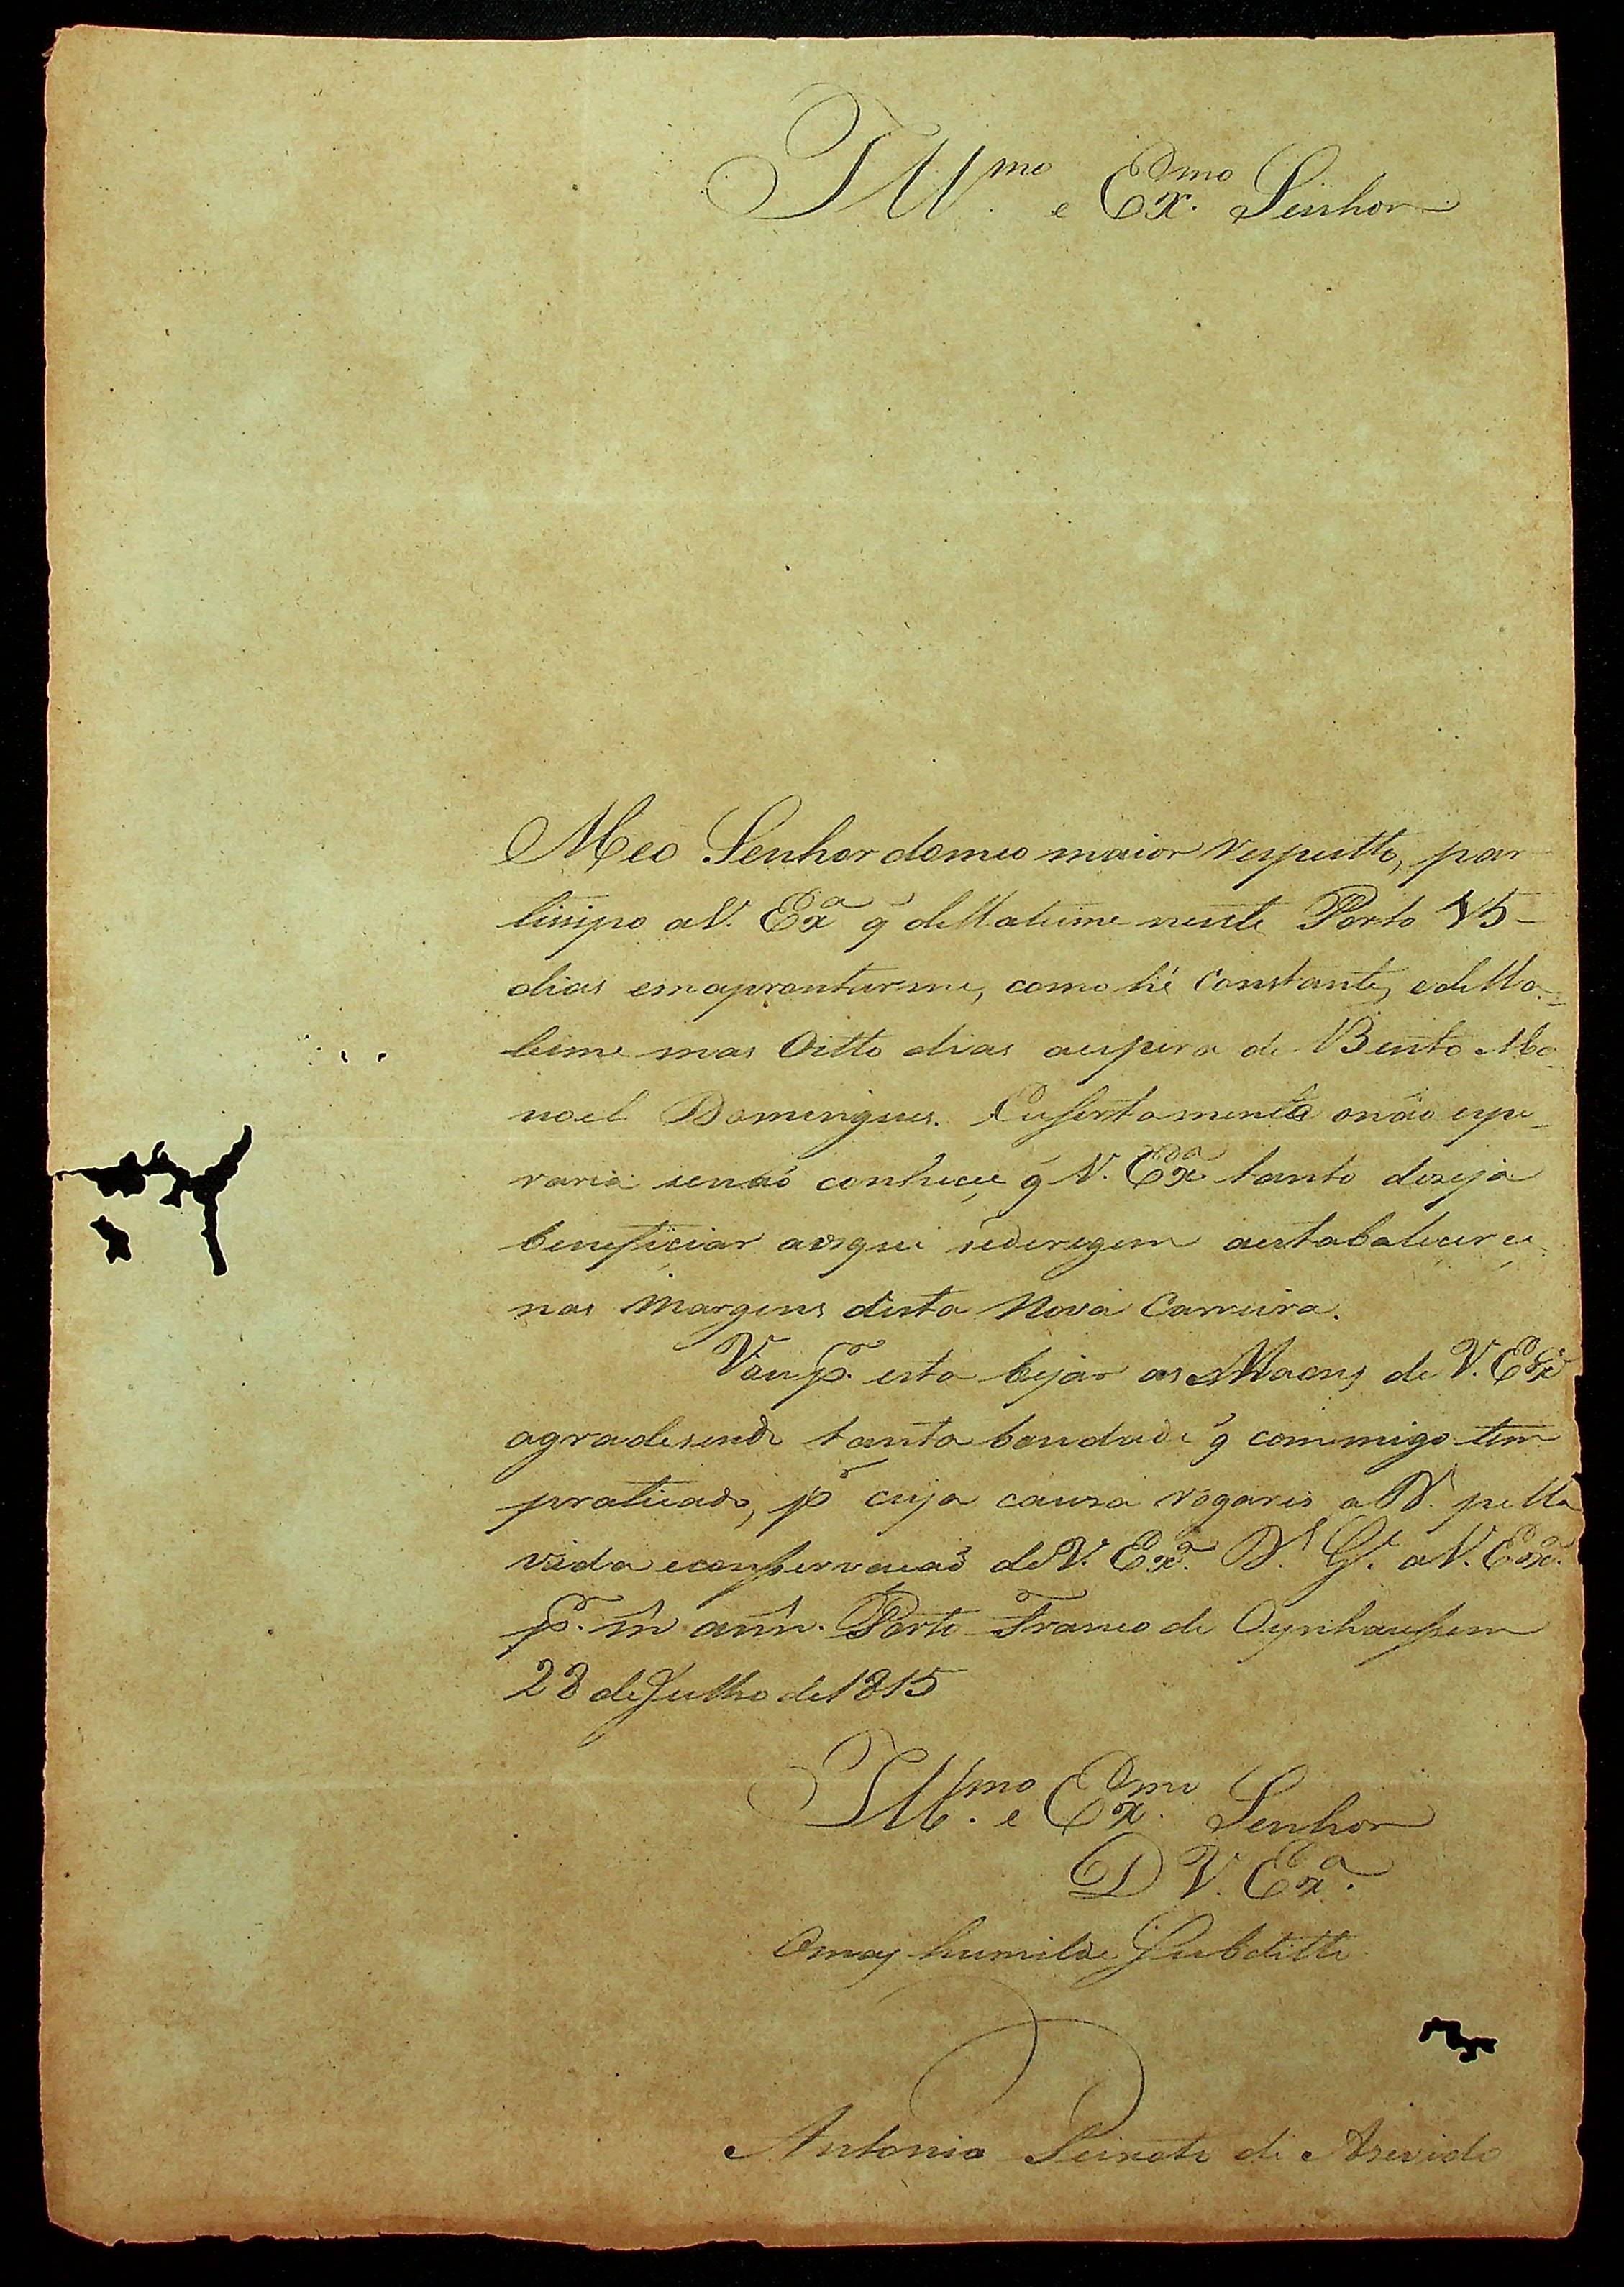 Ill.mo e Ex.mo Senhor
Meo Senhor domeo maior respeitto, par
tissipo a V. Exa q̃ dillateime neste Porto 15
dias em aprontarme, como hé Constante, e dilla-
teime mas Oitto dias aespera de Bento Ma
noel Domingues. Eu sertamente onão espe-
raria senaõ conhecece q̃ V. Exa tanto dezeja
beneficiar aosque sederegem aestabalecerce
nas Margens desta Nova Carreira.
Vou p.r esta bejar as Maons de V. Exa
agradesendo tanta bondade q̃ commigo tem
praticado, p.r cuja cauza rogarei a D.s pella
vida econservacaõ de V. Ex.a D.s G.e a V. Ex.a
p.r m. ann. Porto Franco de Oynhaussem
28 de Julho de 1815
Ill.mo e Ex.mo Senhor
D V. Ex.a
Omay humilde Subditto
Antonio Peixoto de Azevido